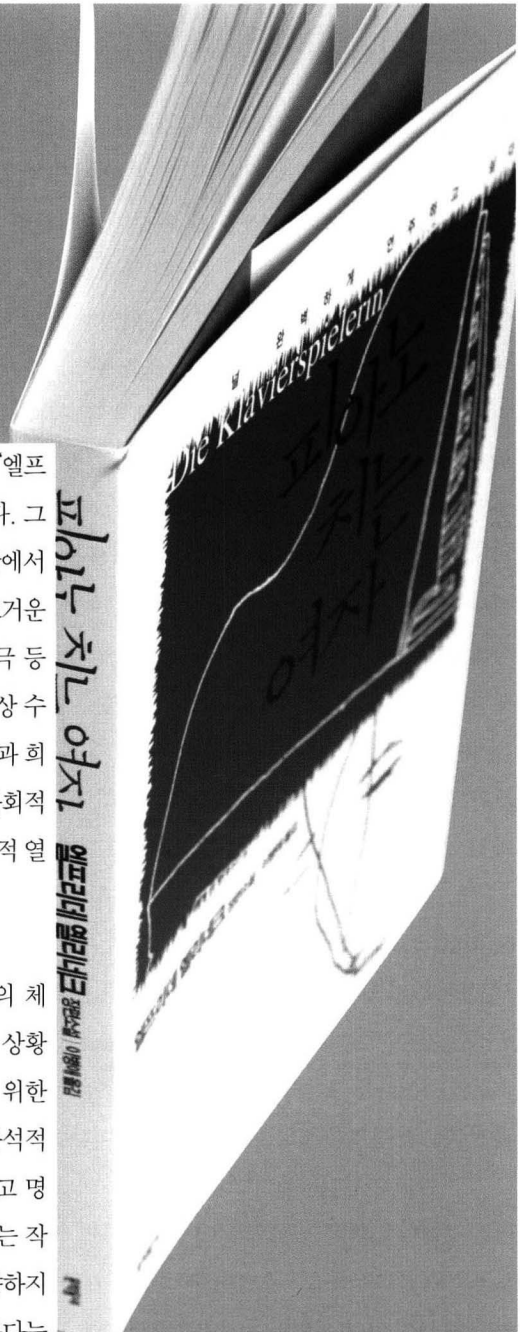 엘프
다. 그
에서
거운
극 등
상 수
과 희
회적
적 열
의 체
상황
위한
석적
고 명
는 작
하지
다는
피아노 치는 여자
엘프리데 옐리네크 장편소설 | 이병애 옮김
완벽하게 연주하고
Die Klavierspielerin
피아노
치는
여자